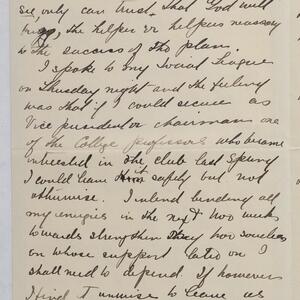 see, only can trust that God will
the helper or helpers necessary
to the success of the plan.
I spoke to my Social League
on Thursday night and the feeling
was that if I could secure as
Vice president or chairman one
of the College professors who became
interested in the club last Spring
I could leave it safely but not
otherwise. I intend bending all
my energies in the next two weeks
towards strengthen two societies
on whose support later on I
shall need to depend. If however
I find it unwise to leave as